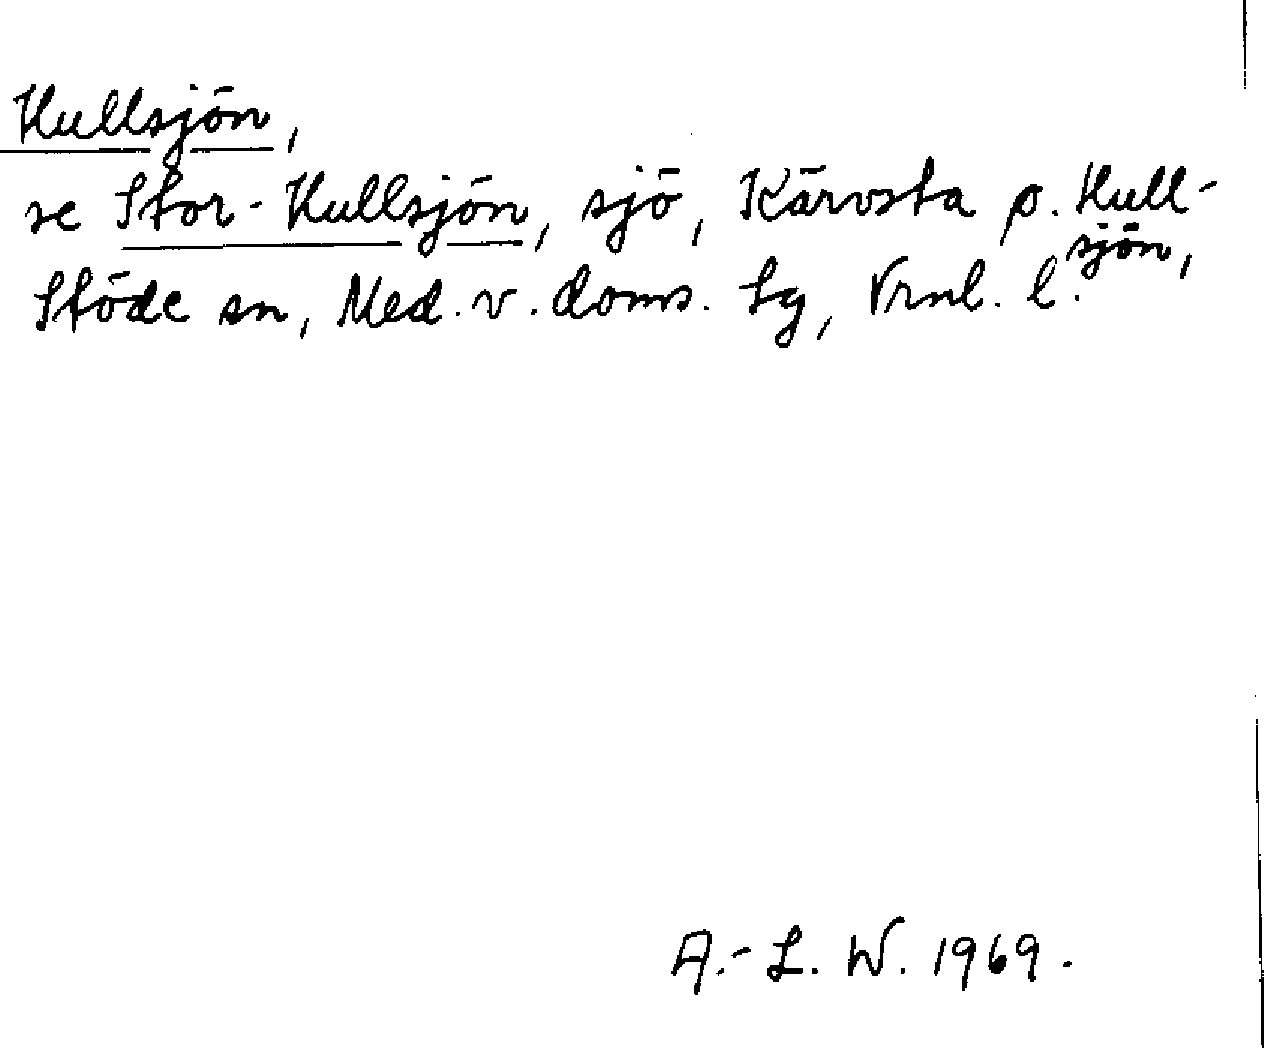 Hullsjön,
se Stor-Hullsjön, sjö, Kärvsta o. Hull-
sjön,
Stöde sn, Med. v. doms. tg, Vrnl. l.
A.-L. W. 1969.